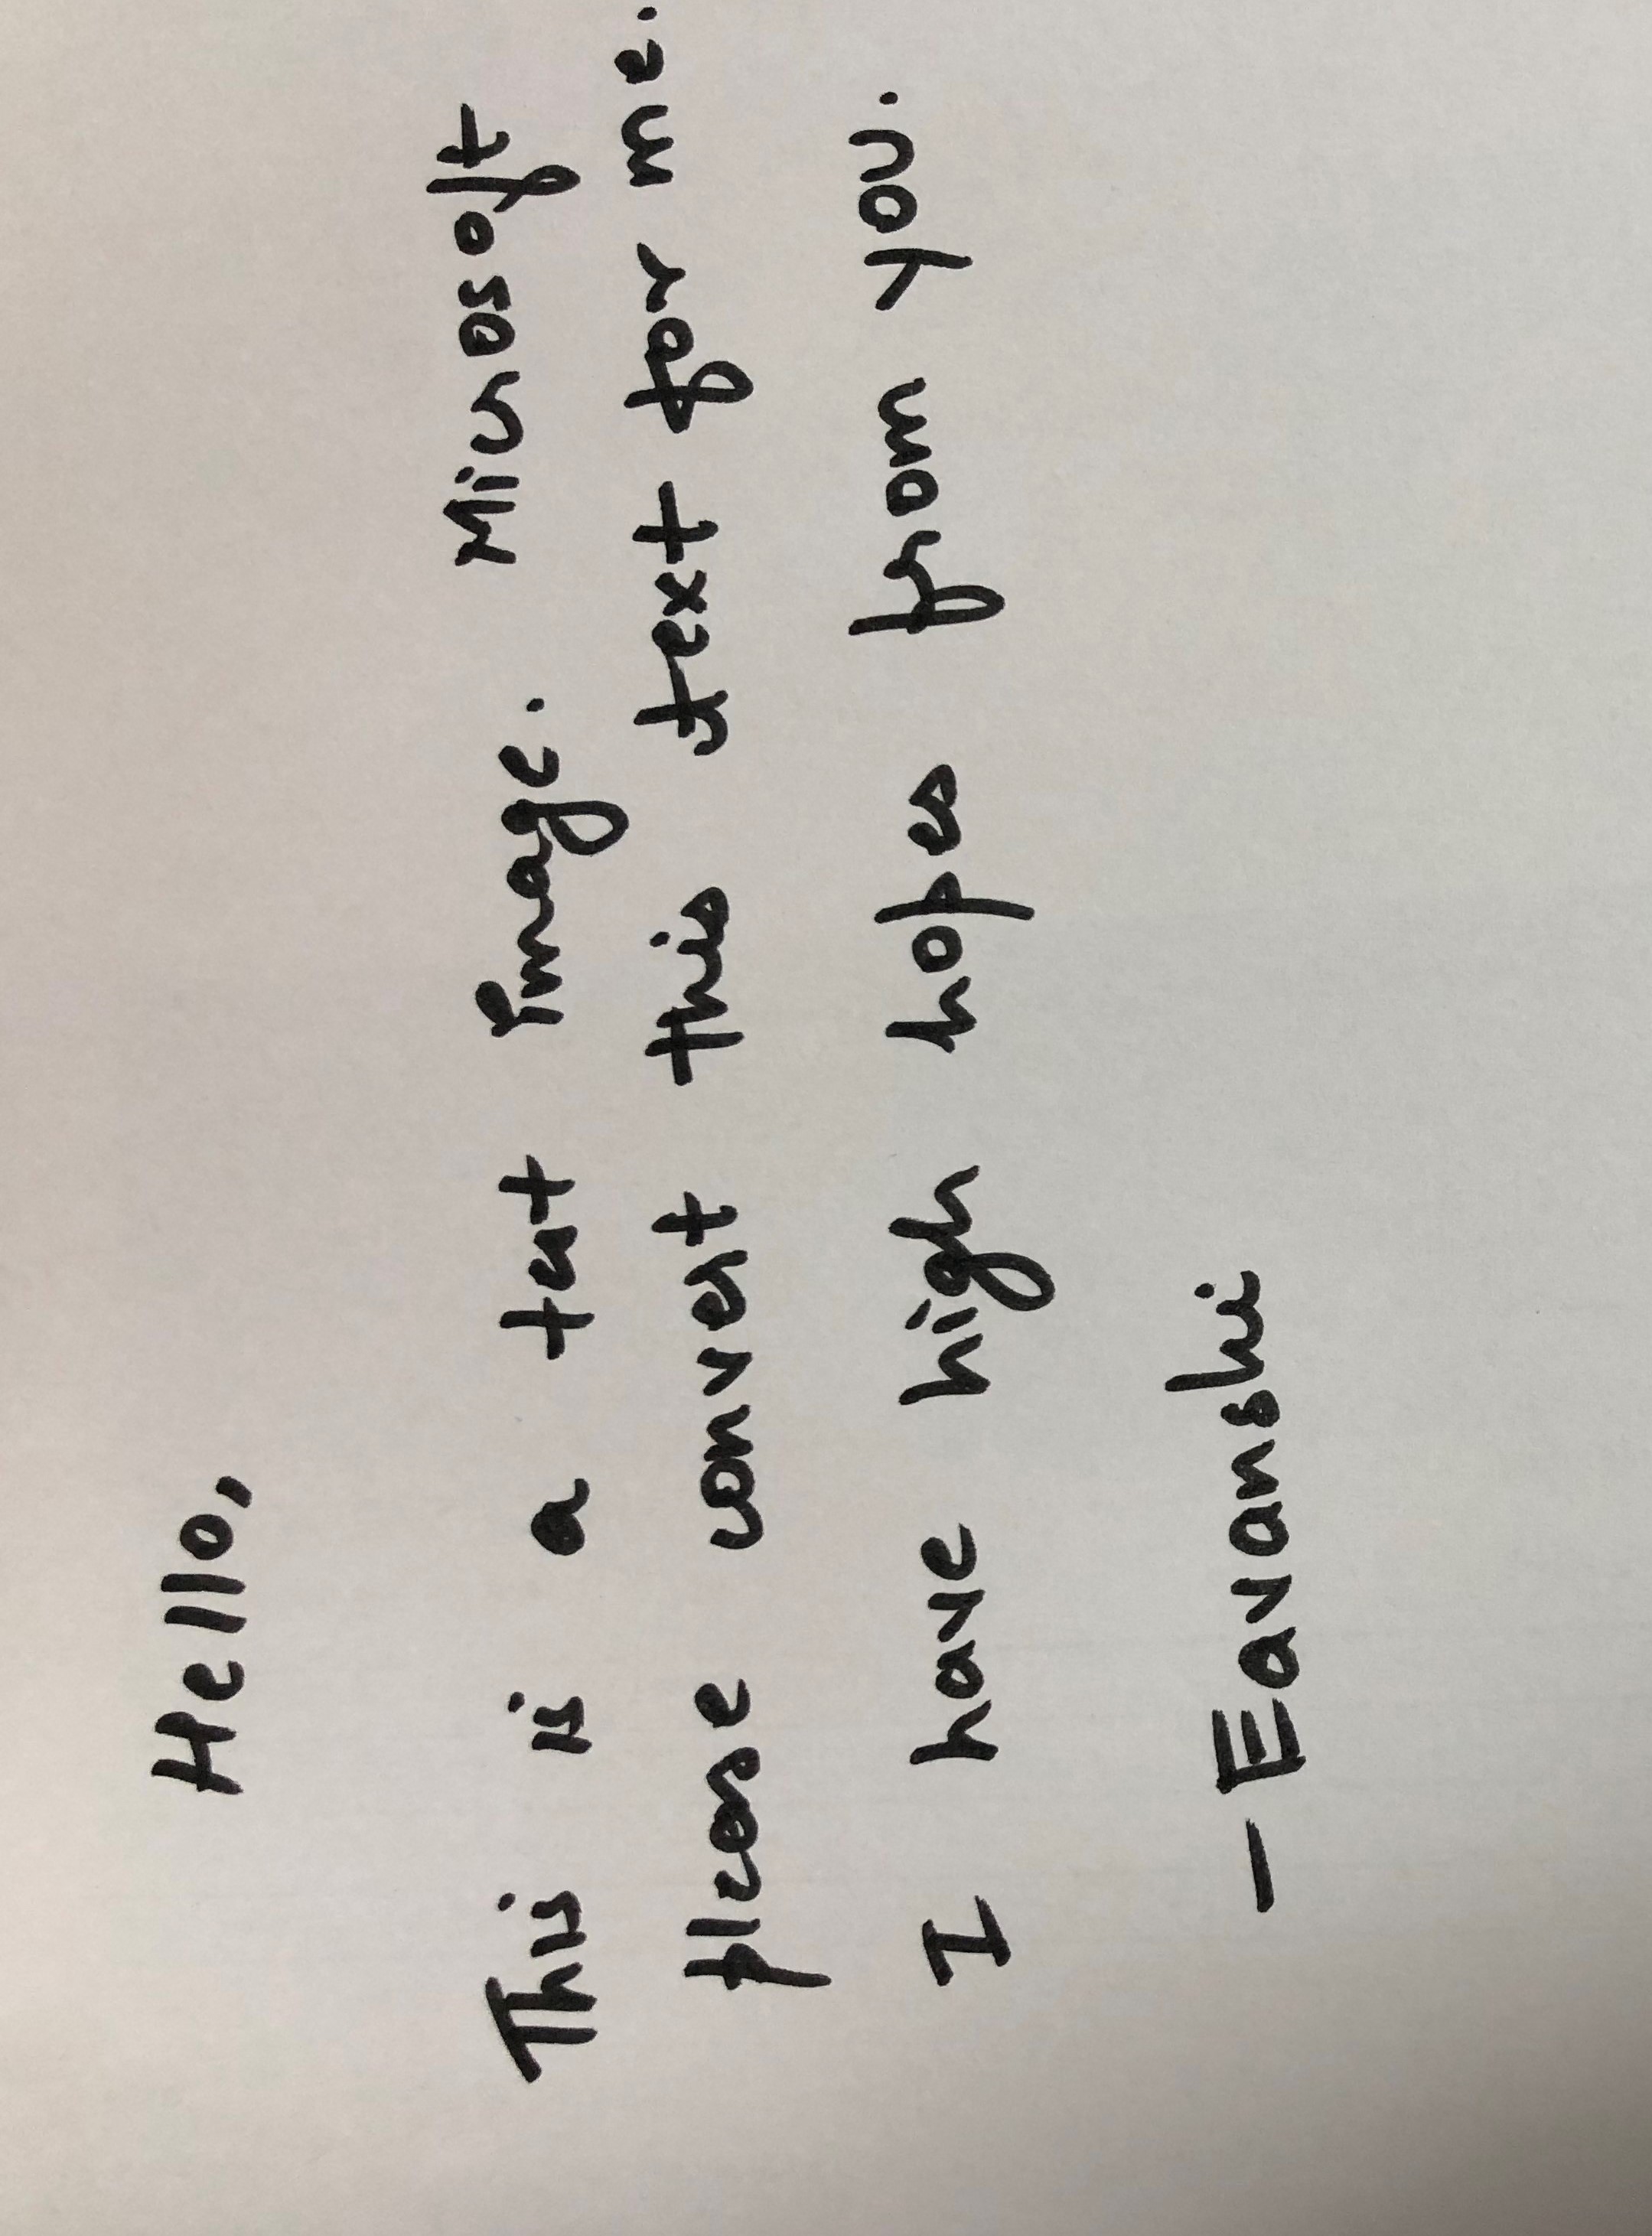 Hello,
This is a test image. Microsoft
please convert this text for me.
I have high hopes from you.
- Eavanshi